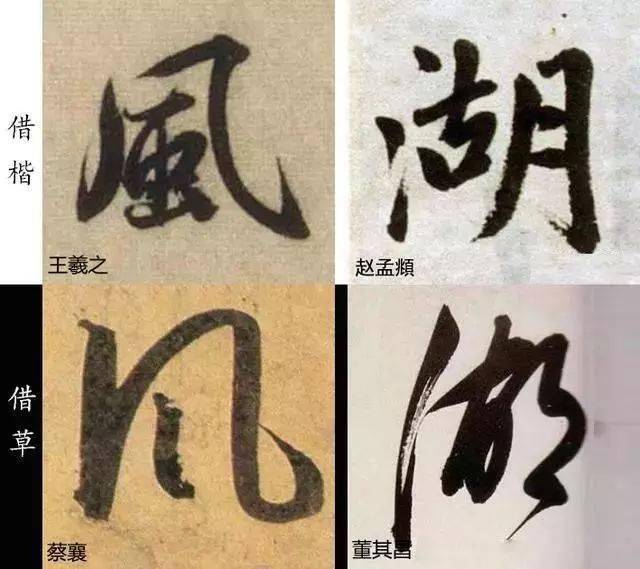 借楷
風
王羲之
湖
赵孟頫
借草
风
蔡襄
湖
董其昌